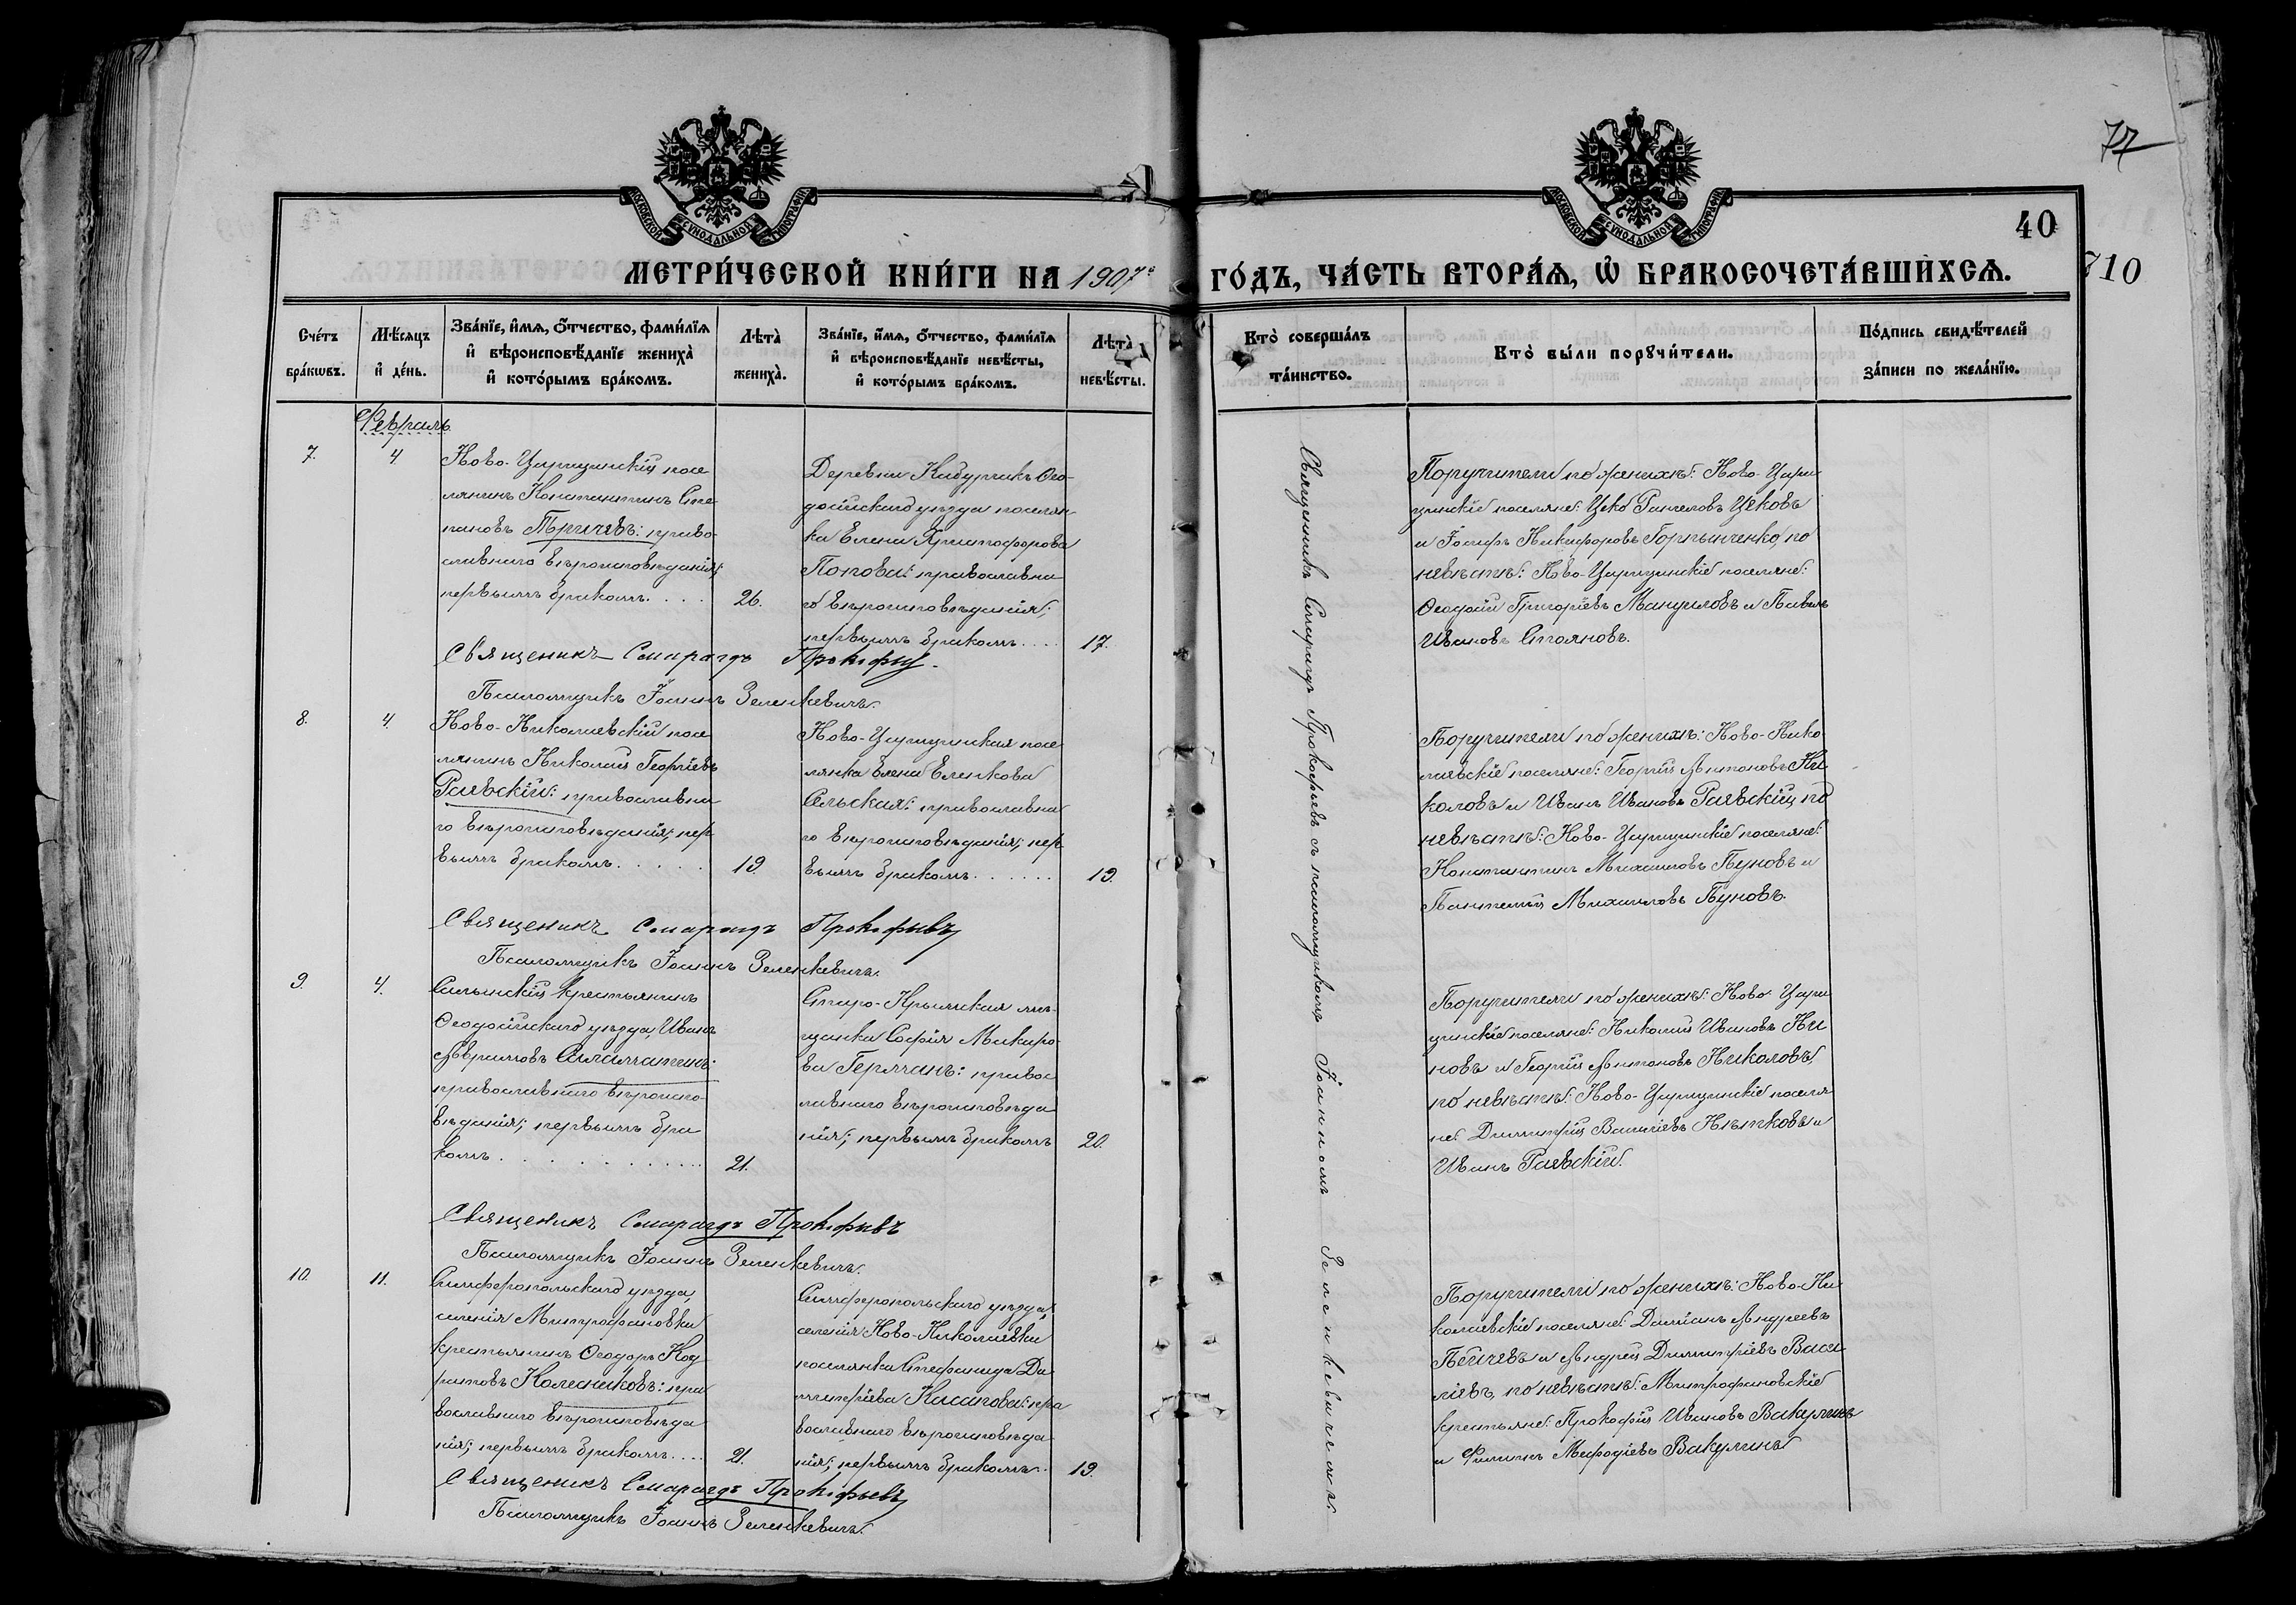 77
40
710
МОСКОВСКОЙ СѴНОДАЛЬНОЙ ТИПОГРАФІИ
МОСКОВСКОЙ СѴНОДАЛЬНОЙ ТИПОГРАФІИ
МЕТРИ́ЧЕСКОЙ КНИ́ГИ НА 1907й ГО́ДЪ, ЧА́СТЬ ВТОРА́Ѧ, Ѽ БРАКОСОЧЕТА́ВШИХСѦ.
Сче́тъ
бра́кѡвъ.
Мѣ́сяцъ
и҆ де́нь.
Зва́нїе, и҆́мѧ, ѻ҆́тчество, фами́лїѧ
и҆ вѣроисповѣ́данїе жениха̀
и҆ кото́рымъ бра́комъ.
Лѣта̀
жениха̀.
Зва́нїе, и҆́мѧ, ѻ҆́тчество, фами́лїѧ
и҆ вѣроисповѣ́данїе невѣ́сты,
и҆ кото́рымъ бра́комъ.
Лѣта̀
невѣ́сты.
Кто̀ соверша́лъ
та́инство.
Кто̀ бы́ли порꙋчи́тели.
По́дпись свидѣ́телей
за́писи по жела́нїю.
Февраль
7.
4.
Ново-Царицинскій посе
лянинъ Константинъ Сте
пановъ Тричевъ: право
славнаго вѣроисповѣданія;
первымъ бракомъ. . . .
26.
Деревни Кабурчакъ Ѳео-
досійскаго уѣзда поселян-
ка Елена Христофорова
Попова: православна
го вѣроисповѣданія;
первымъ бракомъ. . . .
17.
Поручители по женихѣ: Ново-Цари
цинскіе поселяне: Цеко Рангеловъ Цековъ
и Іосифъ Никифоровъ Горпынченко, по
невѣстѣ: Ново-Царицинскіе поселяне:
Ѳеодосій Григоріевъ Мануиловъ и Павелъ
Ивановъ Стояновъ.
Священикъ Смарагдъ Прокофьев
Псаломщикъ Іоаннъ Зеленкевичъ.
8.
4.
Ново-Николаевскій посе
лянинъ Николай Георгіевъ
Раевскій: православна
го вѣроисповѣданія; пер
вымъ бракомъ. . . . .
19.
Ново-Царицинская посе
лянка Елена Еленкова
Сельская: православна
го вѣроисповѣданія; пер
вымъ бракомъ. . . . . .
19.
Поручители по женихѣ: Ново-Нико
лаевскіе поселяне: Георгій Антоновъ Ни
коловъ и Иванъ Ивановъ Раевскій, по
невѣстѣ: Ново-Царицинскіе поселяне:
Константинъ Михаиловъ Буновъ и
Пантелей Михаиловъ Буновъ.
Священикъ Смарагдъ Прокофьевъ
Псаломщикъ Іоаннъ Зеленкевичъ.
9.
4.
крестьянинъ
Ѳеодосійскаго уѣзда, Иванъ
Авраамовъ
православнаго вѣроиспо-
вѣданія; первымъ бра
комъ . . . . . . . . . . .
21.
Старо-Крымская мѣ-
щанка Софія Макаро
ва Германъ: правос
лавнаго вѣроисповѣда
нія; первымъ бракомъ
20.
Поручители по женихѣ: Ново-Цари
цинскіе поселяне: Николай Ивановъ Ни
новъ и Георгій Антоновъ Николовъ,
по невѣстѣ: Ново-Царицинскіе поселя
не: Димитрій Василіевъ Нѣтковъ и
Иванъ Раевскій.
Священикъ Смарагдъ Прокофьевъ
Псаломщикъ Іоаннъ Зеленкевичъ.
10.
11.
Симферопольскаго уѣзда,
селенія Митрофановки
крестьянинъ Ѳеодоръ Код
ратовъ Колесниковъ: пра
вославнаго вѣроисповѣда
нія; первымъ бракомъ. . . .
21.
Симферопольскаго уѣзда,
селенія Ново-Николаевки
поселянка Стефанида Ди
митріева Касапова: пра
вославнаго вѣроисповѣда
нія; первымъ бракомъ. .
19.
Поручители по женихѣ: Ново-Ни
колаевскіе поселяне: Даміанъ Андреевъ
Пейчевъ и Андрей Димитріевъ Васи
ліевъ, по невѣстѣ: Митрофановскіе
крестьяне: Прокофій Ивановъ Вакулинъ
и Филипъ Меѳодіевъ Вакулинъ
Священикъ Смарагдъ Прокофьевъ
Псаломщикъ Іоаннъ Зеленкевичъ.
Священникъ Смарагдъ Прокофьевъ съ псаломщикомъ Іоанномъ Зеленкевичемъ.